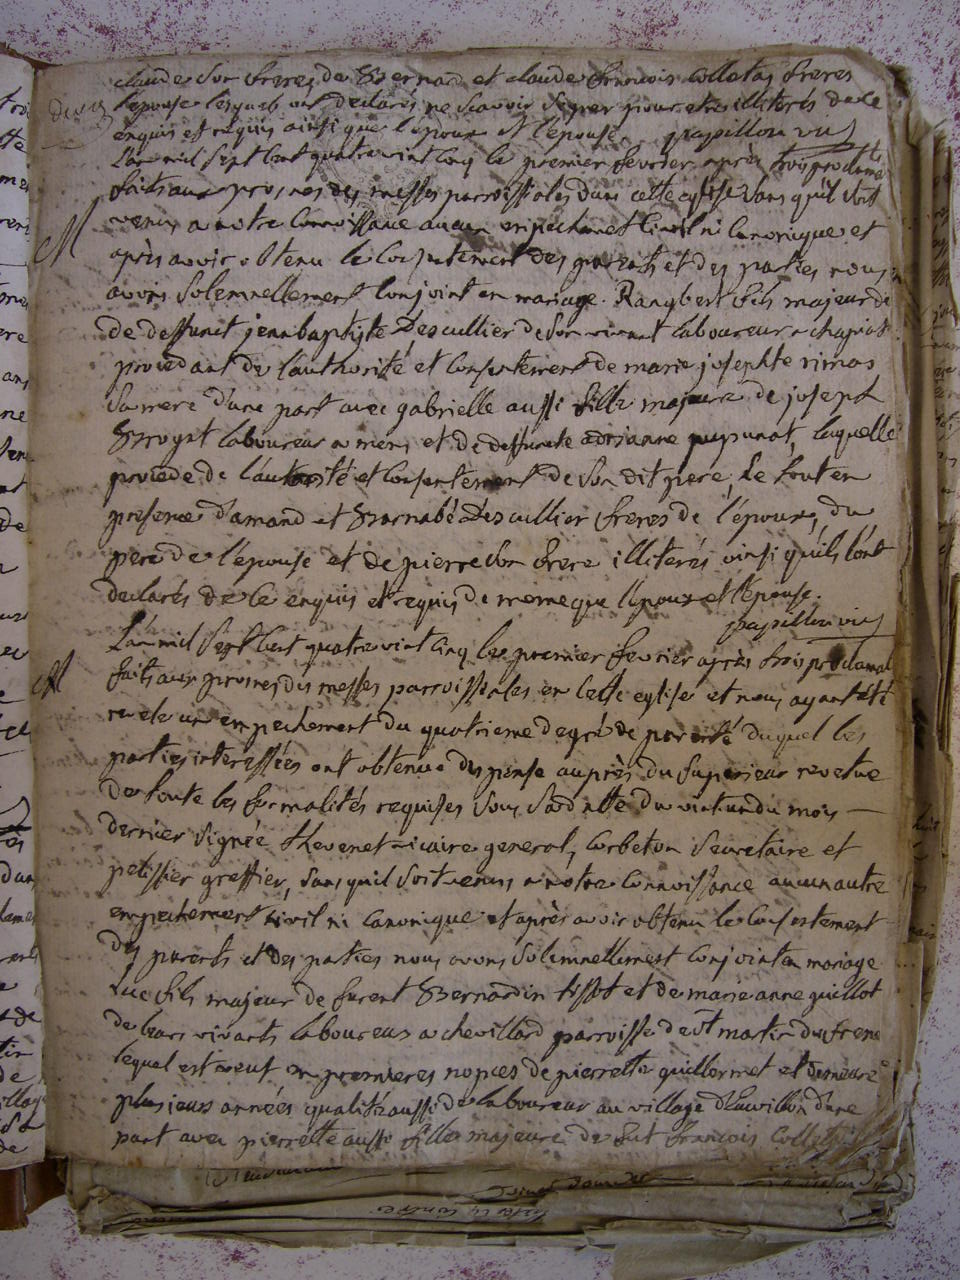 claude son frere, de Bernard et claude francois colletaz freres
l'epouse lesquels ont declarés ne scavoir signer pour etre illiterés de ce
enquis et requis ainsi que l'epoux et l'epouse. papillon vic
L'an mil sept cent quatre vint cinq le premier fevrier après trois proclama
faits aux prosnes des messes parroissiales dans cette eglise sans qu'il soit
venu a notre connoissance aucun empechement civil ni canonique et
M
après avoir obtenu le consentement des parents et des parties nous
avons solemnellement conjoint en mariage Rangbert fils majeur de
de deffunct jean baptiste Descullier de son vivant laboureur a
procedant de l'authorité et consentement de marie josephte
sa mere d'une part avec gabrielle aussi fille majeure de joseph
laboureur a et de deffuncte adrianne laquelle
procede de l'autorité et consentement de son dit pere Le tout en
presence d'amand et Barnabé Descullier freres de l'epoux, du
pere de l'epouse et de pierre son frere illiterés ainsi qu'ils l'ont
declarés de ce enquis et requis de meme que l'epoux et l'epouse.
papillon vic
L'an mil sept cent quatre vint cinq le premier fevrier après trois proclamat
M
faits aux prosnes des messes parroissiales en cette eglise et nous ayant été
revele un empechement du quatrieme degré de parenté duquel les
parties interessées ont obtenue dispense auprès du superieur revetue
de toute les formalités requises sous sa datte du vint un du mois
dernier signée thevenet vicaire general, corbeton secretaire et
pelissier greffier, sans quil soit venu a notre connoissance aucun autre
empechement civil ni canonique et après avoir obtenu le consentement
des parents et des parties nous avons solemnellement conjoint en mariage
Luc fils majeur de furent Bernardin tissot et de marie anne guillot
de leurs vivants laboureurs a chevillard parroisse de st martin du frene
lequel est veuf en premieres nopces de pierrette guillermet et demeure
plusieurs années qualité aussi de laboureur au village d'une
part avec pierrette aussi fille majeure de fut francois